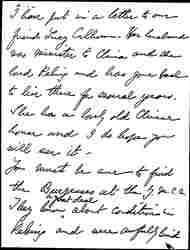 I have put in a letter to our
friend Lucy Calhoun. Her husband
was minister to China and she
lives Peking and has gone back
to live there for several years.
She has a lovely old Chinese
house and I do hope you
will see it –
You must be sure to find
the Burgesses at the Y.M.C.A.
They know a great deal about conditions in
Peking and were awfully kind